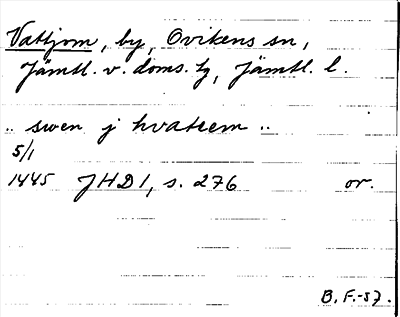 Vattjom, by, Ovikens sn,
Jämtl. v. doms. tg, Jämtl. l.
.. swen j hvatiem ..
5/1
1445 JHD 1, s. 276 or.
B. F.-57.